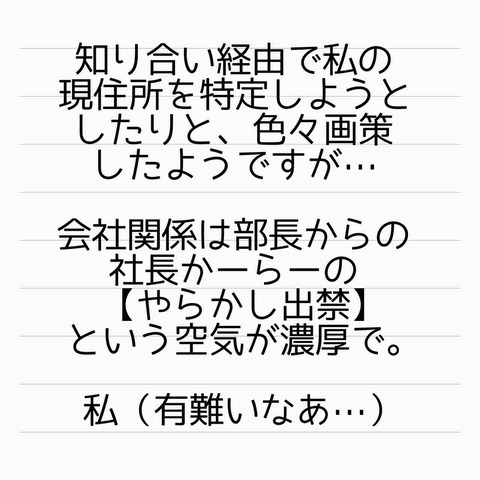 知り合い経由で私の
現住所を特定しようと
したりと、色々画策
したようですが…
会社関係は部長からの
社長かーらーの
【やらかし出禁】
という空気が濃厚で。
私（有難いなあ…）